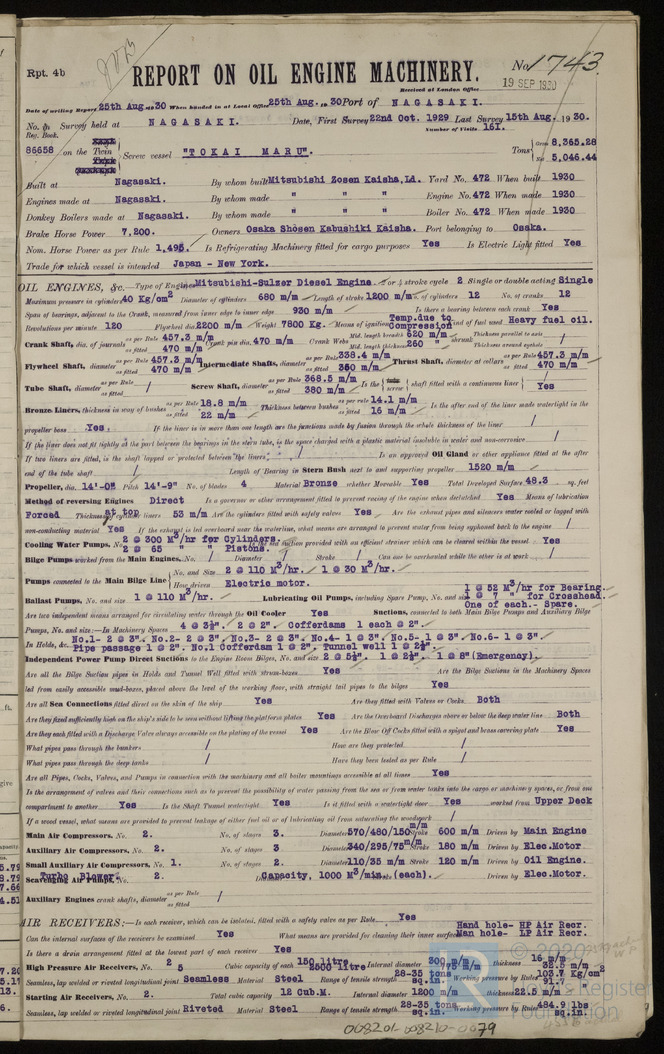 Rpt. 4b
REPORT ON OIL ENGINE MACHINERY.
No. 1743.
19 SEP 1930
Received at London Office
Date of writing Report 25th Aug. 1930 When handed in at Local Office 25th Aug. 1930 Port of NAGASAKI.
No. in Survey held at NAGASAKI. Date, First Survey 22nd Oct. 1929 Last Survey 15th Aug. 1930.
Reg. Book. Number of Visits 161.
86658 on the Twin Screw vessel "TOKAI MARU". Tons Gross 8,365.28
Net 5,046.44
Built at Nagasaki. By whom built Mitsubishi Zosen Kaisha, Ld. Yard No. 472 When built 1930
Engines made at Nagasaki. By whom made " " " Engine No. 472 When made 1930
Donkey Boilers made at Nagasaki. By whom made " " " Boiler No. 472 When made 1930
Brake Horse Power 7,200. Owners Osaka Shosen Kabushiki Kaisha. Port belonging to Osaka.
Nom. Horse Power as per Rule 1,495. Is Refrigerating Machinery fitted for cargo purposes Yes Is Electric Light fitted Yes
Trade for which vessel is intended Japan - New York.
OIL ENGINES, &c. Type of Engines Mitsubishi-Sulzer Diesel Engine. 2 or 4 stroke cycle 2 Single or double acting Single
Maximum pressure in cylinders 40 Kg/cm2 Diameter of cylinders 680 m/m Length of stroke 1200 m/m No. of cylinders 12 No. of cranks 12
Span of bearings, adjacent to the Crank, measured from inner edge to inner edge 930 m/m Is there a bearing between each crank Yes
Revolutions per minute 120 Flywheel dia. 2200 m/m Weight 7800 Kg. Means of ignition Temp. due to Compression Kind of fuel used Heavy fuel oil.
Crank Shaft, dia. of journals as per Rule 457.3 m/m as fitted 470 m/m Crank pin dia. 470 m/m Crank Webs Mid. length breadth 620 m/m Thickness parallel to axis /
Mid. length thickness 260 " shrunk Thickness around eyehole /
Flywheel Shaft, diameter as per Rule 457.3 m/m as fitted 470 m/m Intermediate Shafts, diameter as per Rule 338.4 m/m as fitted 350 m/m Thrust Shaft, diameter at collars as per Rule 457.3 m/m as fitted 470 m/m
Tube Shaft, diameter as per Rule / as fitted / Screw Shaft, diameter as per Rule 368.5 m/m as fitted 380 m/m Is the screw shaft fitted with a continuous liner Yes
Bronze Liners, thickness in way of bushes as per Rule 18.8 m/m as fitted 22 m/m Thickness between bushes as per rule 14.1 m/m as fitted 16 m/m Is the after end of the liner made watertight in the
propeller boss Yes. If the liner is in more than one length are the junctions made by fusion through the whole thickness of the liner /
If the liner does not fit tightly at the part between the bearings in the stern tube, is the space charged with a plastic material insoluble in water and non-corrosive /
If two liners are fitted, is the shaft lapped or protected between the liners / Is an approved Oil Gland or other appliance fitted at the after
end of the tube shaft / Length of Bearing in Stern Bush next to and supporting propeller 1520 m/m
Propeller, dia. 14'-0" Pitch 14'-9" No. of blades 4 Material Bronze whether Moveable Yes Total Developed Surface 48.3 sq. feet
Method of reversing Engines Direct Is a governor or other arrangement fitted to prevent racing of the engine when declutched Yes Means of lubrication
Forced Thickness of cylinder liners at top 53 m/m Are the cylinders fitted with safety valves Yes Are the exhaust pipes and silencers water cooled or lagged with
non-conducting material Yes If the exhaust is led overboard near the waterline, what means are arranged to prevent water from being syphoned back to the engine /
Cooling Water Pumps, No. 2 @ 300 M3/hr for Cylinders. Is the sea suction provided with an efficient strainer which can be cleared within the vessel Yes
2 @ 65 " " Pistons.
Bilge Pumps worked from the Main Engines, No. / Diameter / Stroke / Can one be overhauled while the other is at work /
Pumps connected to the Main Bilge Line No. and Size 2 @ 110 M3/hr. 1 @ 30 M3/hr.
How driven Electric motor.
Ballast Pumps, No. and size 1 @ 110 M3/hr. Lubricating Oil Pumps, including Spare Pump, No. and size 1 @ 52 M3/hr for Bearing.
1 @ 7 " for Crosshead.
One of each.- Spare.
Are two independent means arranged for circulating water through the Oil Cooler Yes Suctions, connected to both Main Bilge Pumps and Auxiliary Bilge
Pumps, No. and size:—In Machinery Spaces 4 @ 3½". 2 @ 2". Cofferdams 1 each @ 2".
In Holds, &c. No.1- 2 @ 3". No.2- 2 @ 3". No.3- 2 @ 3". No.4- 1 @ 3". No.5- 1 @ 3". No.6- 1 @ 3".
Pipe passage 1 @ 2". No.1 Cofferdam 1 @ 2". Tunnel well 1 @ 2½".
Independent Power Pump Direct Suctions to the Engine Room Bilges, No. and size 2 @ 5½". 1 @ 2½". 1 @ 8" (Emergency).
Are all the Bilge Suction pipes in Holds and Tunnel Well fitted with strum-boxes Yes Are the Bilge Suctions in the Machinery Spaces
led from easily accessible mud-boxes, placed above the level of the working floor, with straight tail pipes to the bilges Yes
Are all Sea Connections fitted direct on the skin of the ship Yes Are they fitted with Valves or Cocks Both
Are they fixed sufficiently high on the ship's side to be seen without lifting the platform plates Yes Are the Overboard Discharges above or below the deep water line Both
Are they each fitted with a Discharge Valve always accessible on the plating of the vessel Yes Are the Blow Off Cocks fitted with a spigot and brass covering plate Yes
What pipes pass through the bunkers / How are they protected /
What pipes pass through the deep tanks / Have they been tested as per Rule /
Are all Pipes, Cocks, Valves, and Pumps in connection with the machinery and all boiler mountings accessible at all times Yes
Is the arrangement of valves and their connections such as to prevent the possibility of water passing from the sea or from water tanks into the cargo or machinery spaces, or from one
compartment to another Yes Is the Shaft Tunnel watertight Yes Is it fitted with a watertight door Yes worked from Upper Deck
If a wood vessel, what means are provided to prevent leakage of either fuel oil or of lubricating oil from saturating the woodwork /
Main Air Compressors, No. 2. No. of stages 3. Diameters 570/480/150 m/m Stroke 600 m/m Driven by Main Engine
Auxiliary Air Compressors, No. 2. No. of stages 3 Diameters 340/295/75 m/m Stroke 180 m/m Driven by Elec.Motor.
Small Auxiliary Air Compressors, No. 1. No. of stages 2. Diameters 110/35 m/m Stroke 120 m/m Driven by Oil Engine.
Turbo Blower Scavenging Air Pumps, No. 2. Capacity, 1000 M3/min. (each). Driven by Elec.Motor.
Auxiliary Engines crank shafts, diameter as per Rule / as fitted /
AIR RECEIVERS:—Is each receiver, which can be isolated, fitted with a safety valve as per Rule Yes
Can the internal surfaces of the receivers be examined Yes What means are provided for cleaning their inner surfaces Hand hole- HP Air Recr.
Man hole- LP Air Recr.
Is there a drain arrangement fitted at the lowest part of each receiver Yes
High Pressure Air Receivers, No. 2 5 Cubic capacity of each 150 litre 2500 litre Internal diameter 300 m/m thickness 16 m/m
Seamless, lap welded or riveted longitudinal joint Seamless Material Steel Range of tensile strength 28-35 tons sq.in. Working pressure by Rules 103.7 Kg/cm2
Starting Air Receivers, No. 2. Total cubic capacity 12 Cub.M. Internal diameter 1200 m/m thickness 22.5 m/m
Seamless, lap welded or riveted longitudinal joint Riveted Material Steel Range of tensile strength 28-35 tons sq.in. Working pressure by Rules 484.9 lbs sq.in.
© 2020
Lloyd's Register
Foundation
008201-008210-0079